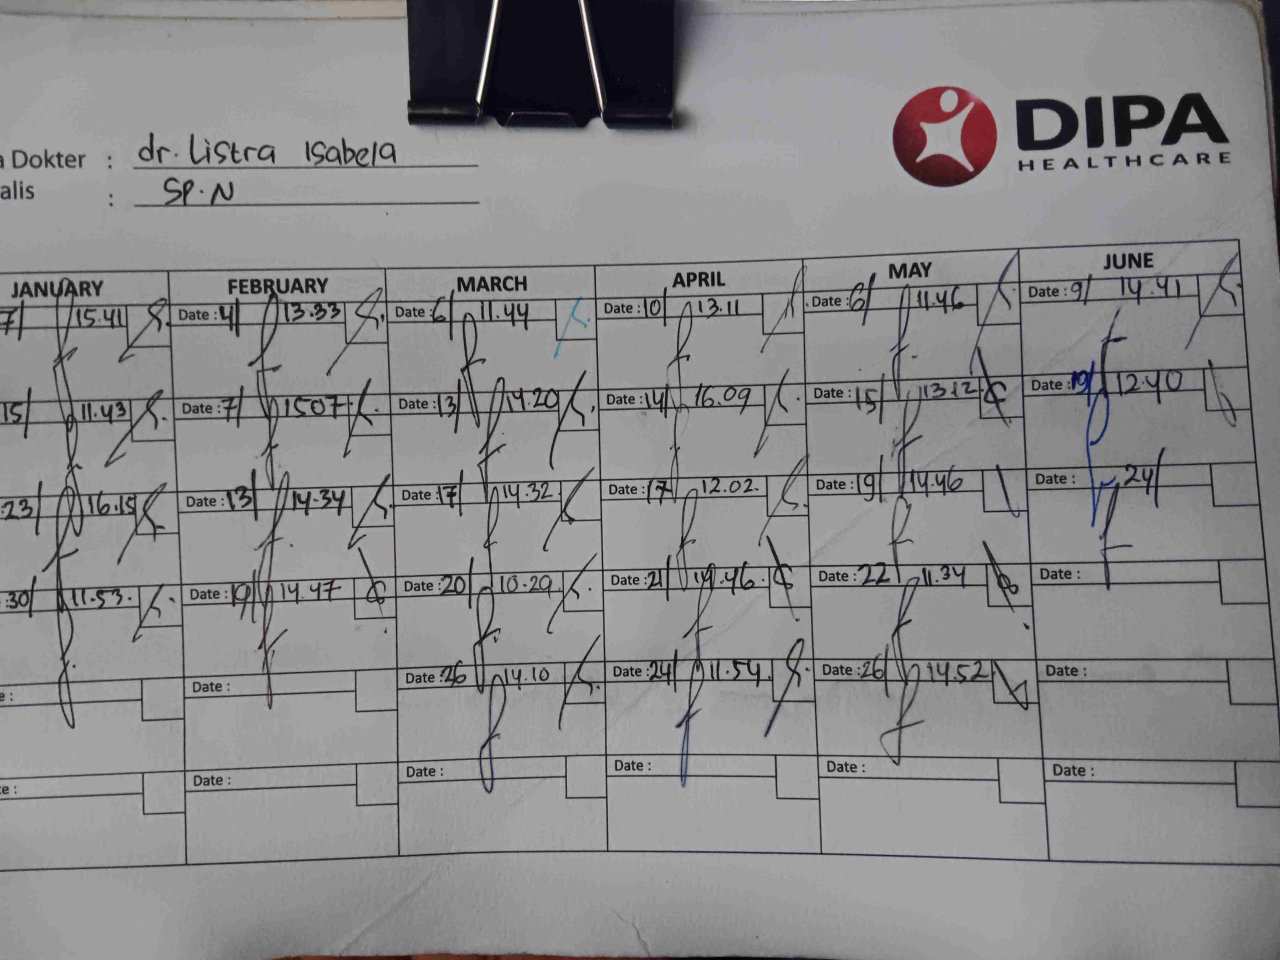 DIPA
HEALTHCARE
a Dokter : dr. Listra Isabela
alis : SP.N
JANUARY FEBRUARY MARCH APRIL MAY JUNE
7/ 15.41 Date : 4/ 13.33 Date : 6/ 11.44 Date : 10/ 13.11 Date : 6/ 11.46 Date : 9/ 14.41
15/ 11.43 Date : 7/ 1507 Date : 13/ 14.20 Date : 14/ 16.09 Date : 15/ 13.12 Date : 19/ 12.40
:23/ 16.15 Date : 13/ 14.34 Date : 17/ 14.32 Date : 17/ 12.02. Date : 19/ 14.46 Date : 24/
:30/ 11.53. Date : 19/ 14.47 Date : 20/ 10.29 Date : 21/ 14.46. Date : 22 11.34 Date :
e : Date : Date : 26 14.10 Date : 24/ 11.54. Date : 26/ 14.52 Date :
te : Date : Date : Date : Date : Date :